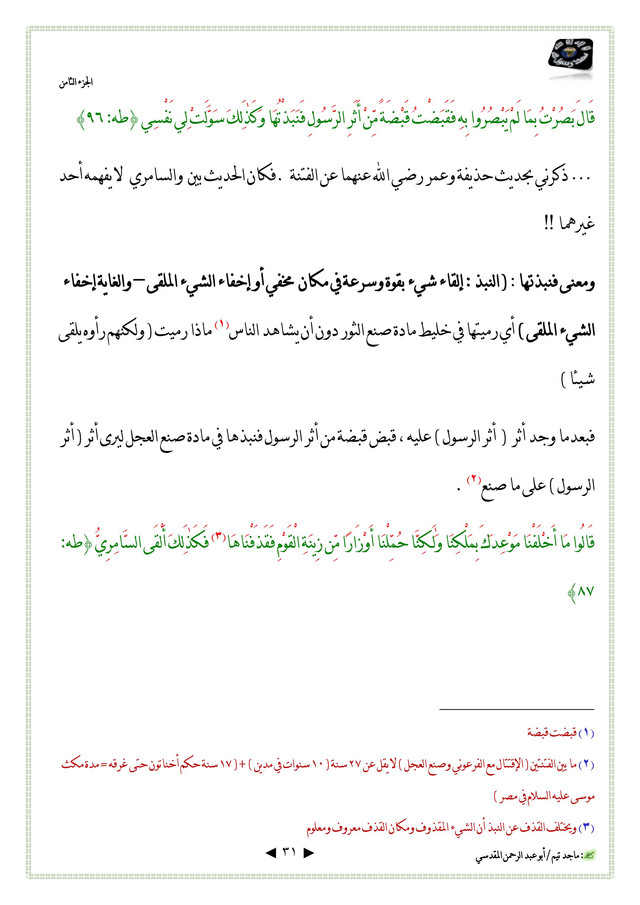 الجزء الثامن
قَالَ بَصُرْتُ بِمَا لَمْ يَبْصُرُوا بِهِ فَقَبَضْتُ قَبْضَةً مِّنْ أَثَرِ الرَّسُولِ فَنَبَذْتُهَا وَكَذَٰلِكَ سَوَّلَتْ لِي نَفْسِي ﴿طه: ٩٦﴾
... ذكرني بحديث حذيفة وعمر رضي الله عنهما عن الفتنة . فكان الحديث بين والسامري لا يفهمه أحد
غيرهما !!
ومعنى فنبذتها : ( النبذ : إلقاء شيء بقوة وسرعة في مكان مخفي أو إخفاء الشيء الملقى – والغاية إخفاء
الشيء الملقى ) أي رميتها في خليط مادة صنع الثور دون أن يشاهد الناس (١) ماذا رميت ( ولكنهم رأوه يلقى
شيئا )
فبعدما وجد أثر ( أثر الرسول ) عليه ، قبض قبضة من أثر الرسول فنبذها في مادة صنع العجل ليرى أثر ( أثر
الرسول ) على ما صنع (٢) .
قَالُوا مَا أَخْلَفْنَا مَوْعِدَكَ بِمَلْكِنَا وَلَٰكِنَّا حُمِّلْنَا أَوْزَارًا مِّن زِينَةِ الْقَوْمِ فَقَذَفْنَاهَا (٣) فَكَذَٰلِكَ أَلْقَى السَّامِرِيُّ ﴿طه:
٨٧﴾
(١) قبضت قبضة
(٢) ما بين الفتنتين ( الإقتتال مع الفرعوني وصنع العجل ) لا يقل عن ٢٧ سنة ( ١٠ سنوات في مدين ) + ( ١٧ سنة حكم أخناتون حتى غرقه = مدة مكث
موسى عليه السلام في مصر )
(٣) ويختلف القذف عن النبذ أن الشيء المقذوف ومكان القذف معروف ومعلوم
: ماجد تيم / أبو عبد الرحمن المقدسي
◄ ٣١ ►